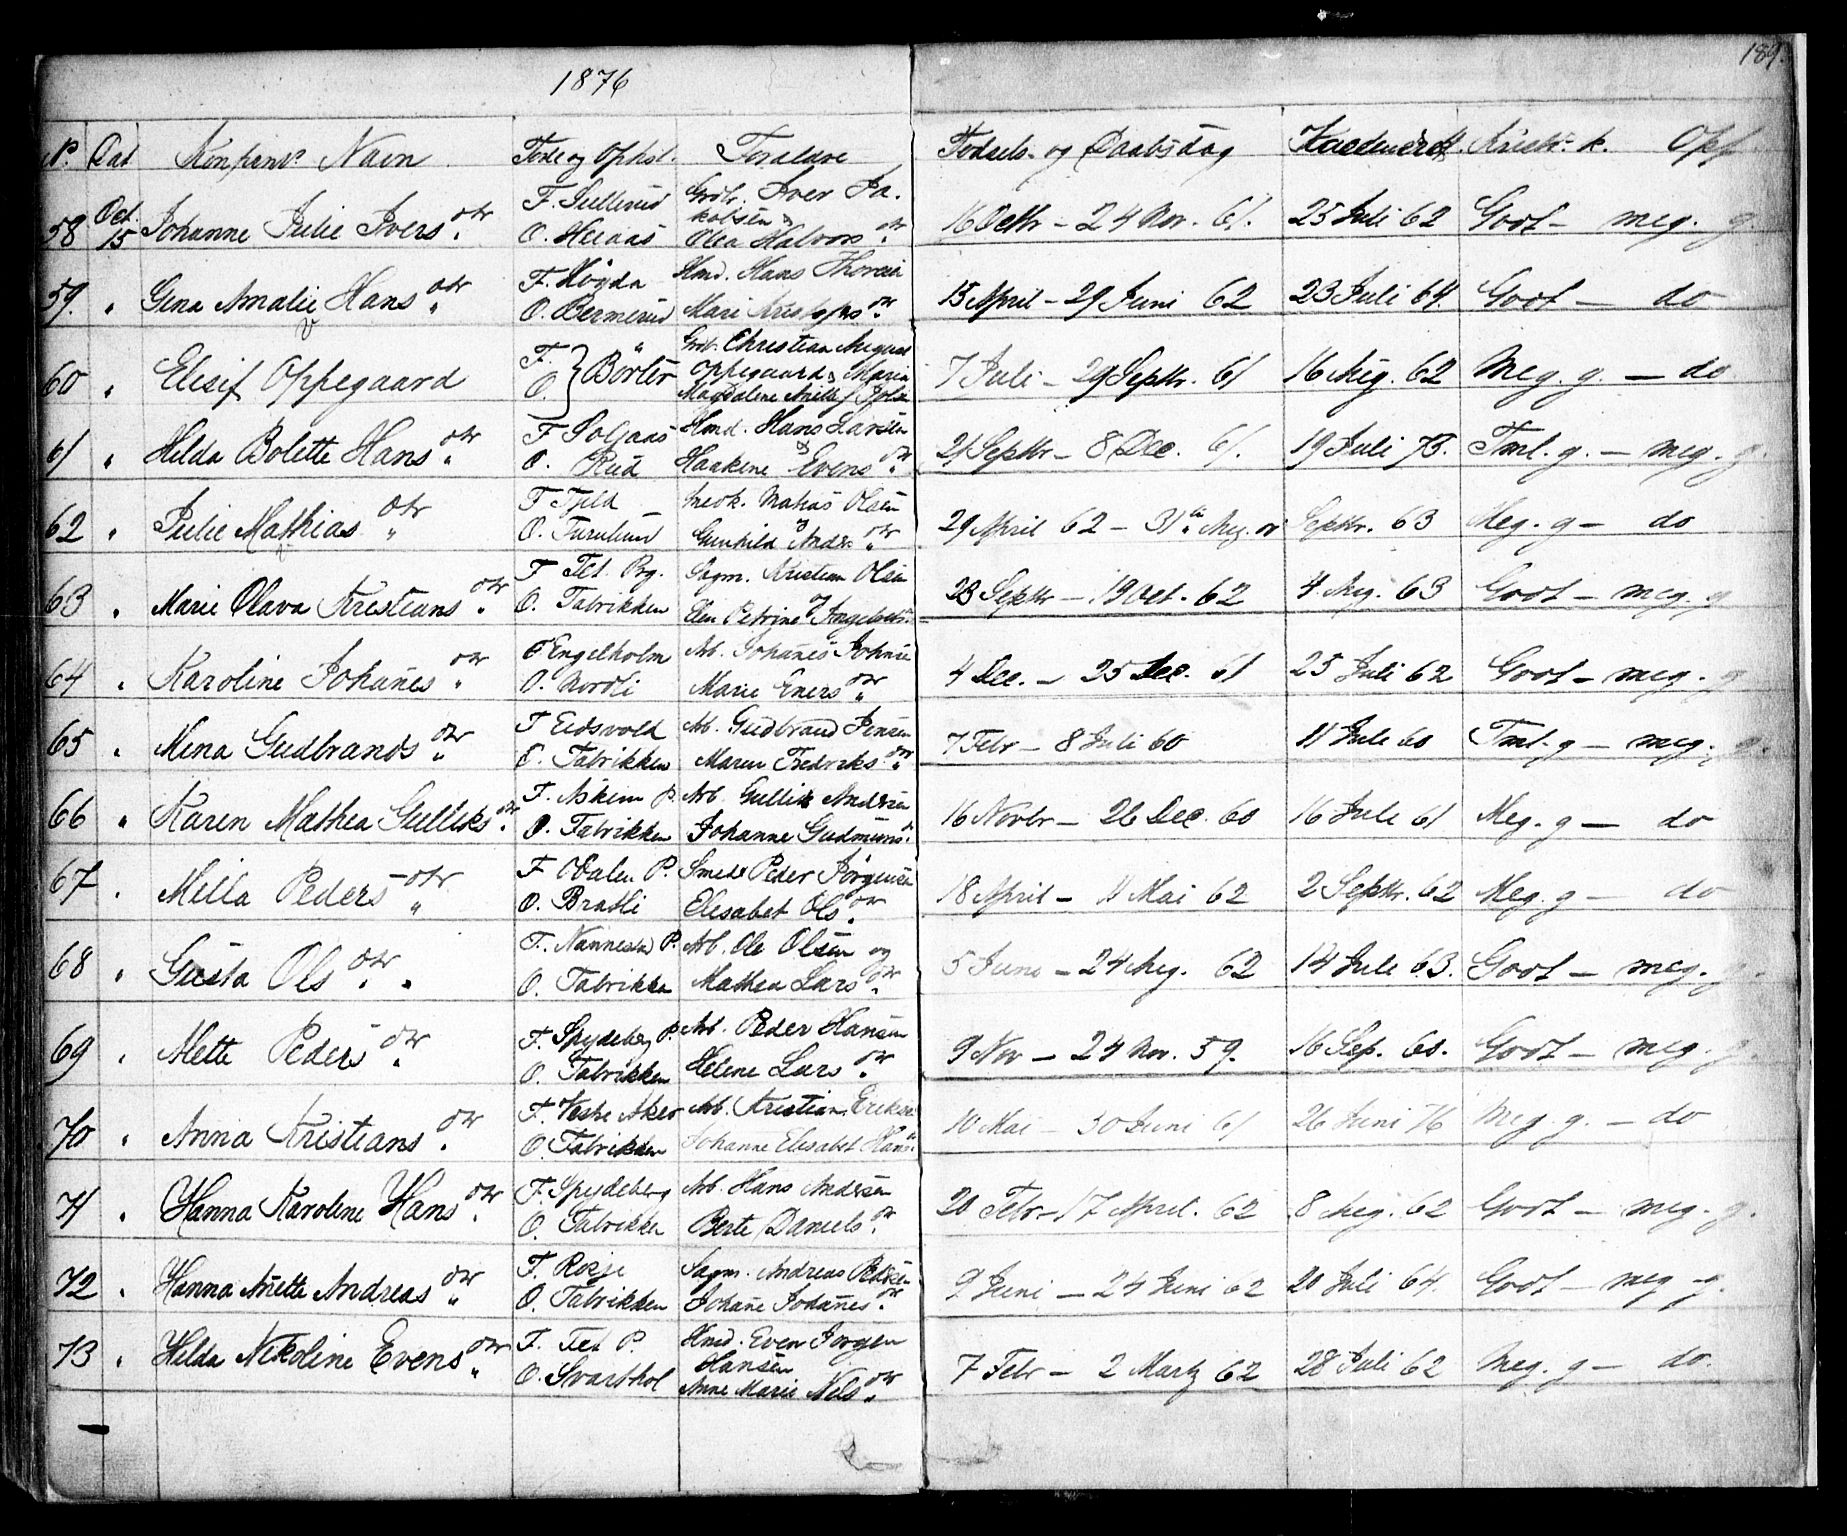 1876
189.
No. Dat. Konfirm.s Navn Føde og Ophst. Forældre Fødsels- og Daabsdag Vaccinerett Kristd. k. Opf.
58 Oct. 15 Johanne Julie Ivers dtr. F. Gullerud Grdbr. Iver Ja-
O. Heiaas kobsen & Olea Halvors dtr. 16 Octbr - 24 Nov. 61. 25 Juli 62 Godt - meg. g.
59. " Gina Amalie Hans dtr. F. Høgda Hmd. Hans
O. Bermerud Mari Kristofers dtr. 15 April - 29 Juni 62 23 Juli 64. Godt - do
60 " Elisif Oppegaard F. O. } Børter Grdb. Christian August
Oppegaard & Maria
Magdalene Anette 7 Juli - 29 Septbr. 61 16 Aug. 62 Meg. g. - do
61 " Hilda Bolette Hans dtr. F Solaas Hmd. Hans Larsen
O. Rud & Haakene Evens dtr. 21 Septbr - 8 Dec. 61. 19 Juli 73. Tml. g. - meg. g.
62 " Julie Mathias dtr. F Fjeld Matias Olsen
O. Furulund & Gunhild Anders dtr. 29 April 62 - 31te Aug. Septbr. 63 Meg. g - do
63 " Marie Olava Kristians dtr. F Fet. Prg. Sagm. Kristian Olsen
O. Fabrikken Elen Petrine 28 Septbr - 19 Oct. 62 4 Aug. 63 Godt - meg. g
64 " Karoline Johanes dtr. F Engelholm Arb. Johanes Johnsen
O. Nordli Marie Eners dtr. 4 Dec. - 25 Dec. 61 25 Juli 62 Godt - meg. g
65 " Mina Gudbrands dtr. F Eidsvold Arb. Gudbrand Jensen
O. Fabrikken Maren Fredriks dtr. 7 Febr - 8 Juli 60 11 Juli 60 Tml. g - meg. g.
66 " Karen Mathea Gulliks dtr. F. Askim P. Arb. Gullik Andersen
O. Fabrikken Johanne Gudmunds d. 16 Novbr - 26 Dec. 60 16 Juli 61 Meg. g - do
67 " Milla Peders dtr. F Valen P. Smed Peder Jørgensen
O. Bratli Elisabet Ols dtr. 18 April - 11 Mai 62 2 Septbr. 62 Meg. g - do
68 " Gusta Ols dtr. F. Nannestad P. Arb. Ole Olsen og
O. Fabrikken Mathea Lars dtr. 5 Juni - 24 Aug. 62 14 Juli 63. Godt - meg. g.
69 " Mette Peders dtr. F. Spydeberg P. Arb. Peder Hansen
O. Fabrikken Helene Lars dtr. 9 Nov - 24 Nov. 59. 16 Sep. 60. Godt - meg. g.
70 " Anna Kristians dtr. F. Vestre Aker Arb. Kristian Eriks.
O. Fabrikken Johanne Elisabet Hans d. 10 Mai - 30 Juni 61 26 Juni 76 Meg. g. - do
71 " Hanna Karoline Hans dtr. F. Spydeberg Arb. Hans Andersen
O. Fabrikken Berte Daniels dtr. 20 Febr - 17 April. 62 8 Aug. 62 Godt - meg. g.
72 " Hanna Anette Andreas dtr. F. Rosje Sagm. Andreas Pedersen
O. Fabrikken Johane Johanes dtr. 9 Juni - 24 Juni 62 20 Juli 64. Godt - meg g.
73 " Hilda Nikoline Evens dtr. F. Fet P. Hmd. Even Jørgen
O. Svarthol Hansen
Anne Marie Nels dtr. 7 Febr - 2 Marts 62 28 Juli 62 Meg. g - do.